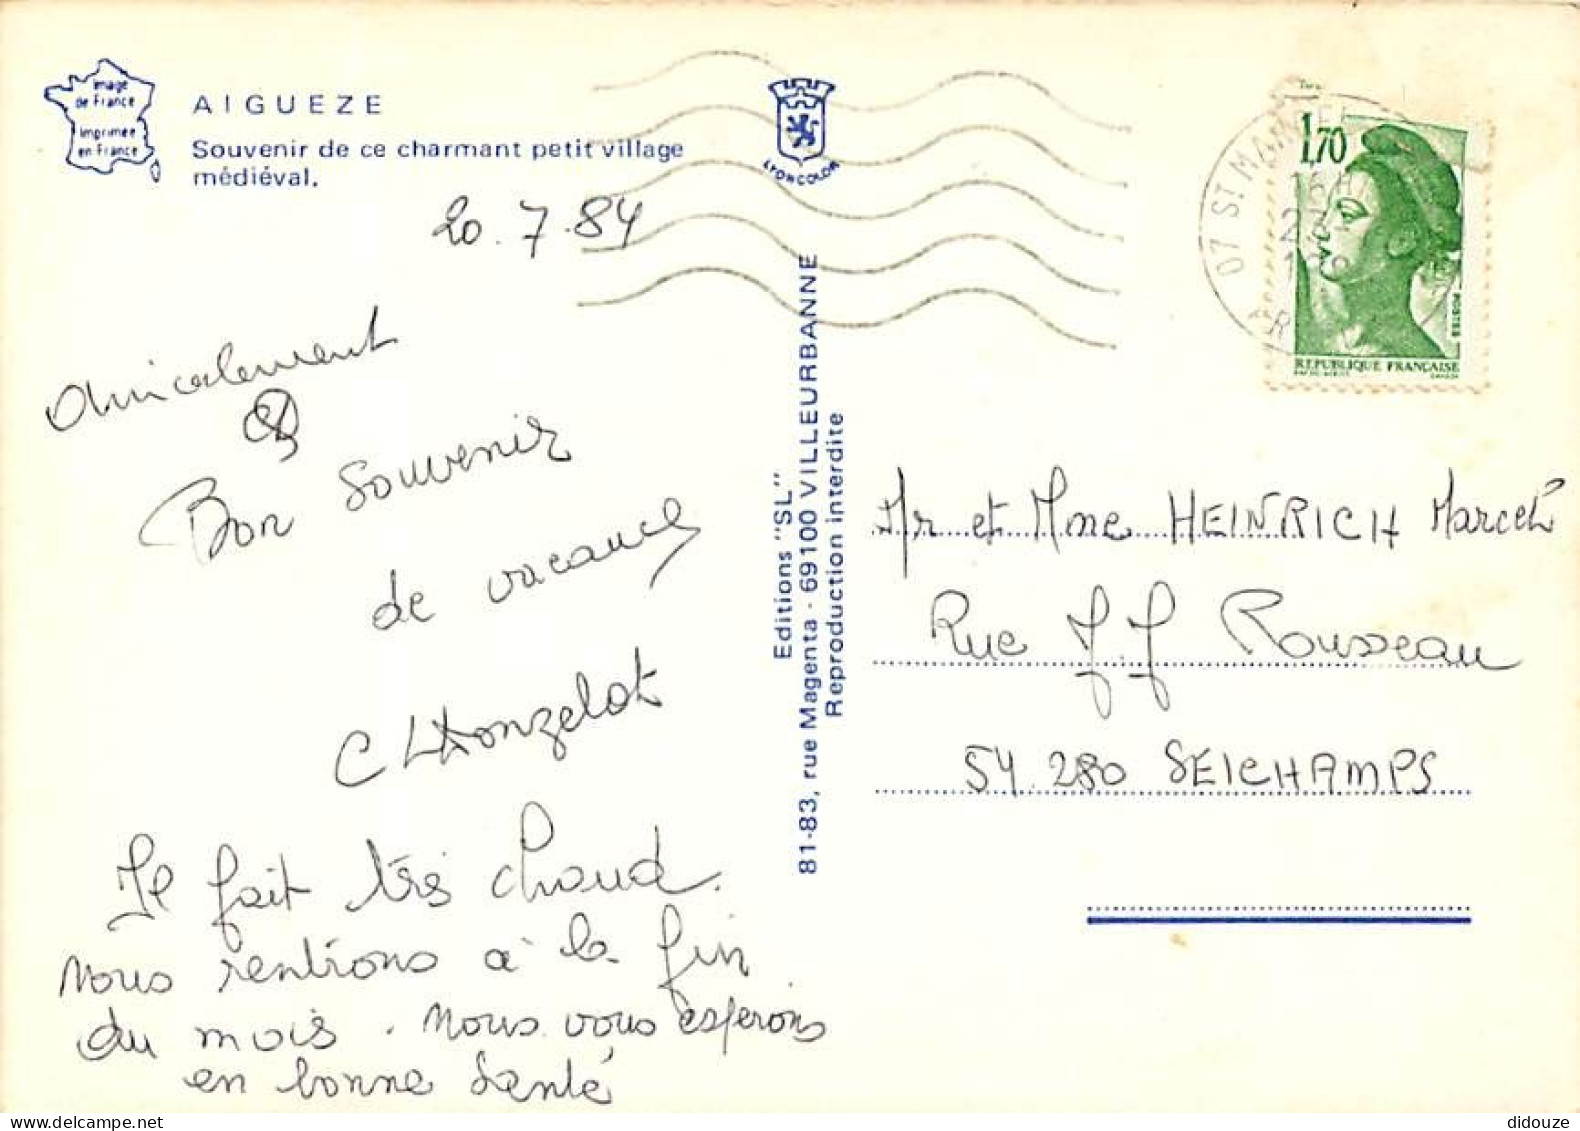 Image
de France
Imprimée
en France
AIGUEZE
Souvenir de ce charmant petit village
médiéval.
LYONCOLOR
20.7.84
Amicalement
&
Bon souvenir
de vacances
Il fait très chaud.
nous rentrons à la fin
du mois. Nous vous espérons
en bonne santé
Editions "SL"
81-83, rue Magenta - 69100 VILLEURBANNE
Reproduction interdite
07 ST
1,70
POSTES
REPUBLIQUE FRANÇAISE
Mr et Mme HEINRICH Marcel
Rue J.J Rousseau
54 280 SEICHAMPS
didouze